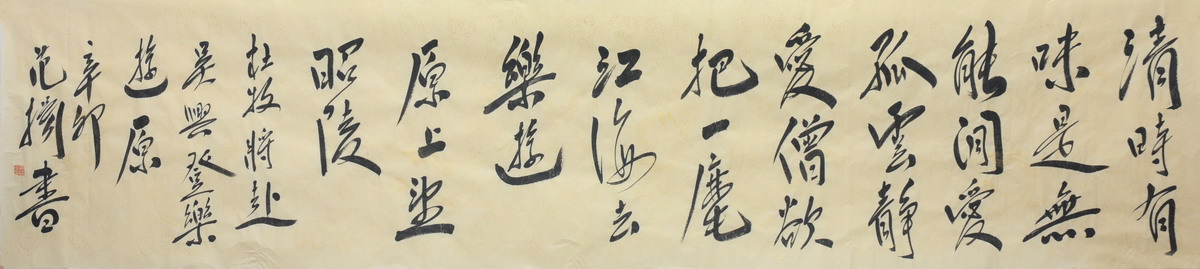 清時有
味是無
能閒愛
孤雲靜
愛僧欲
把一麾
江海去
樂遊
原上望
昭陵
杜牧將赴
吳興登樂
遊原
辛卯
范書